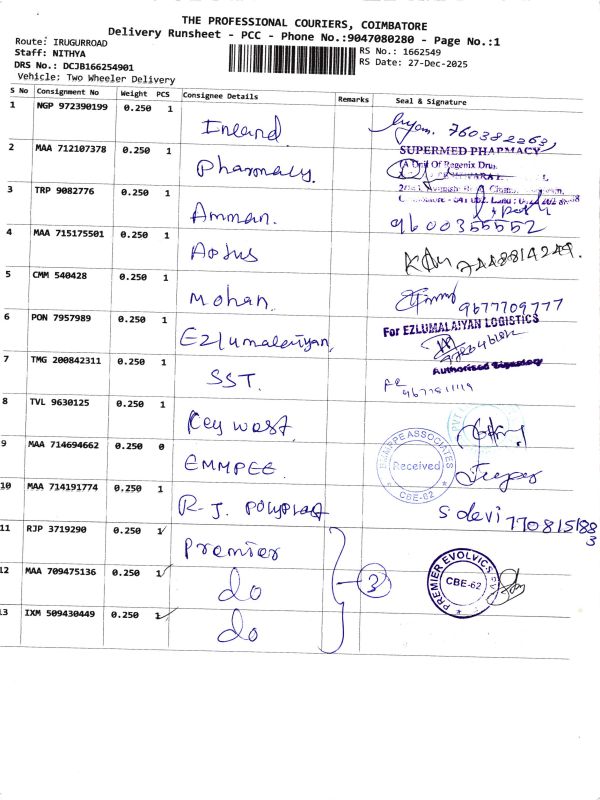 THE PROFESSIONAL COURIERS, COIMBATORE
Delivery Runsheet - PCC - Phone No.:9047080280 - Page No.:1
Route: IRUGURROAD
Staff: NITHYA
RS No.: 1662549
DRS No.: DCJB166254901
RS Date: 27-Dec-2025
Vehicle: Two Wheeler Delivery
S No Consignment No Weight PCS Consignee Details Remarks Seal & Signature
1 NGP 972390199 0.250 1 Inland
2 MAA 712107378 0.250 1 Pharmacy. SUPERMED PHARMACY
(A Unit Of Regenix Drug
3 TRP 9082776 0.250 1 Amman. 9600355552
4 MAA 715175501 0.250 1 Aptus 7448814249.
5 CMM 540428 0.250 1 Mohan. 9677709777
6 PON 7957989 0.250 1 Ezlumalaiyan. For EZLUMALAIYAN LOGISTICS
Authorised Signatory
7 TMG 200842311 0.250 1 SST.
8 TVL 9630125 0.250 1 Key west.
9 MAA 714694662 0.250 0 EMMPEE. EMMPEE ASSOCIATES Received CBE-62
10 MAA 714191774 0.250 1 R.J. Polyplast S devi 7708151883
11 RJP 3719290 0.250 1 Premier
12 MAA 709475136 0.250 1 do 3 PREMIER EVOLVICS PVT CBE-62
13 IXM 509430449 0.250 1 do